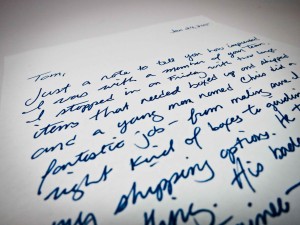 Tom,
Just a note to tell you how impressed
I was with a member of your team.
I stopped in on Friday with two large
items that needed boxed up and shipped
and a young man named Chris did a
fantastic job - from making sure
right kind of boxes to
shipping options. He
thing. His badge